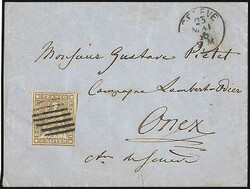 GENÈVE
23
Monsieur Gustave Pictet
Campagne Lambert-Dier
Onex
Ctn de Genève